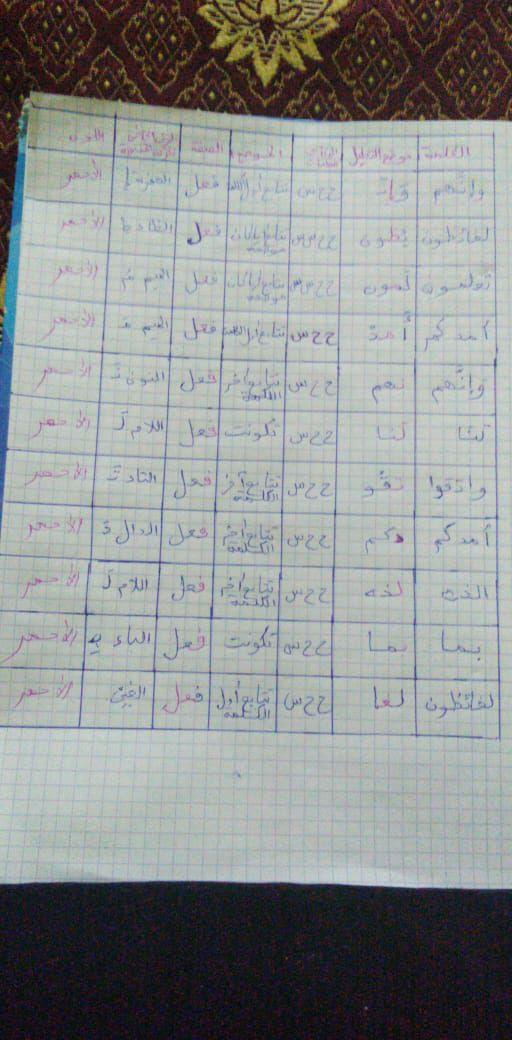 الكلمة موقع التحليل الموضع الصيغة اللون
وإنهم وإنـ ح ح س تتابع أول الكلمة فعل الهمزة إ الأحمر
لغائظون ئظون ح ح س س فعل الأحمر
ح ح س س فعل الميم الأحمر
أمدكم أمد ح ح س تتابع أول الكلمة فعل الميم الأحمر
وإنهم نهم ح ح س تتابع آخر الكلمة فعل النون نَ الأحمر
لنا لنا ح ح س تكونت فعل اللام لَ الأحمر
واتقوا تقو ح ح س تتابع آخر الكلمة فعل التاء الأحمر
أمدكم دكم ح ح س تتابع آخر الكلمة فعل الدال الأحمر
الذي ح ح س تتابع آخر الكلمة فعل اللام لَ الأحمر
بما بما ح ح س تكونت فعل الباء بِ الأحمر
لغائظون لغا ح ح س تتابع أول الكلمة فعل الغين الأحمر